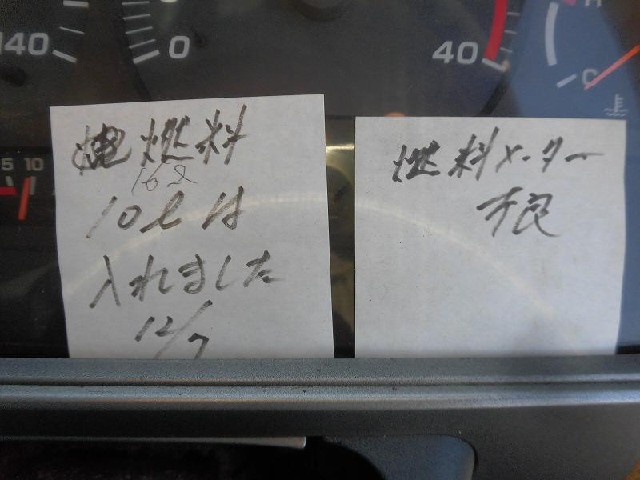 140
0
40
H
C
5 10
燃料
16ℓ
10ℓは
入れました
12/7
燃料メーター
不良